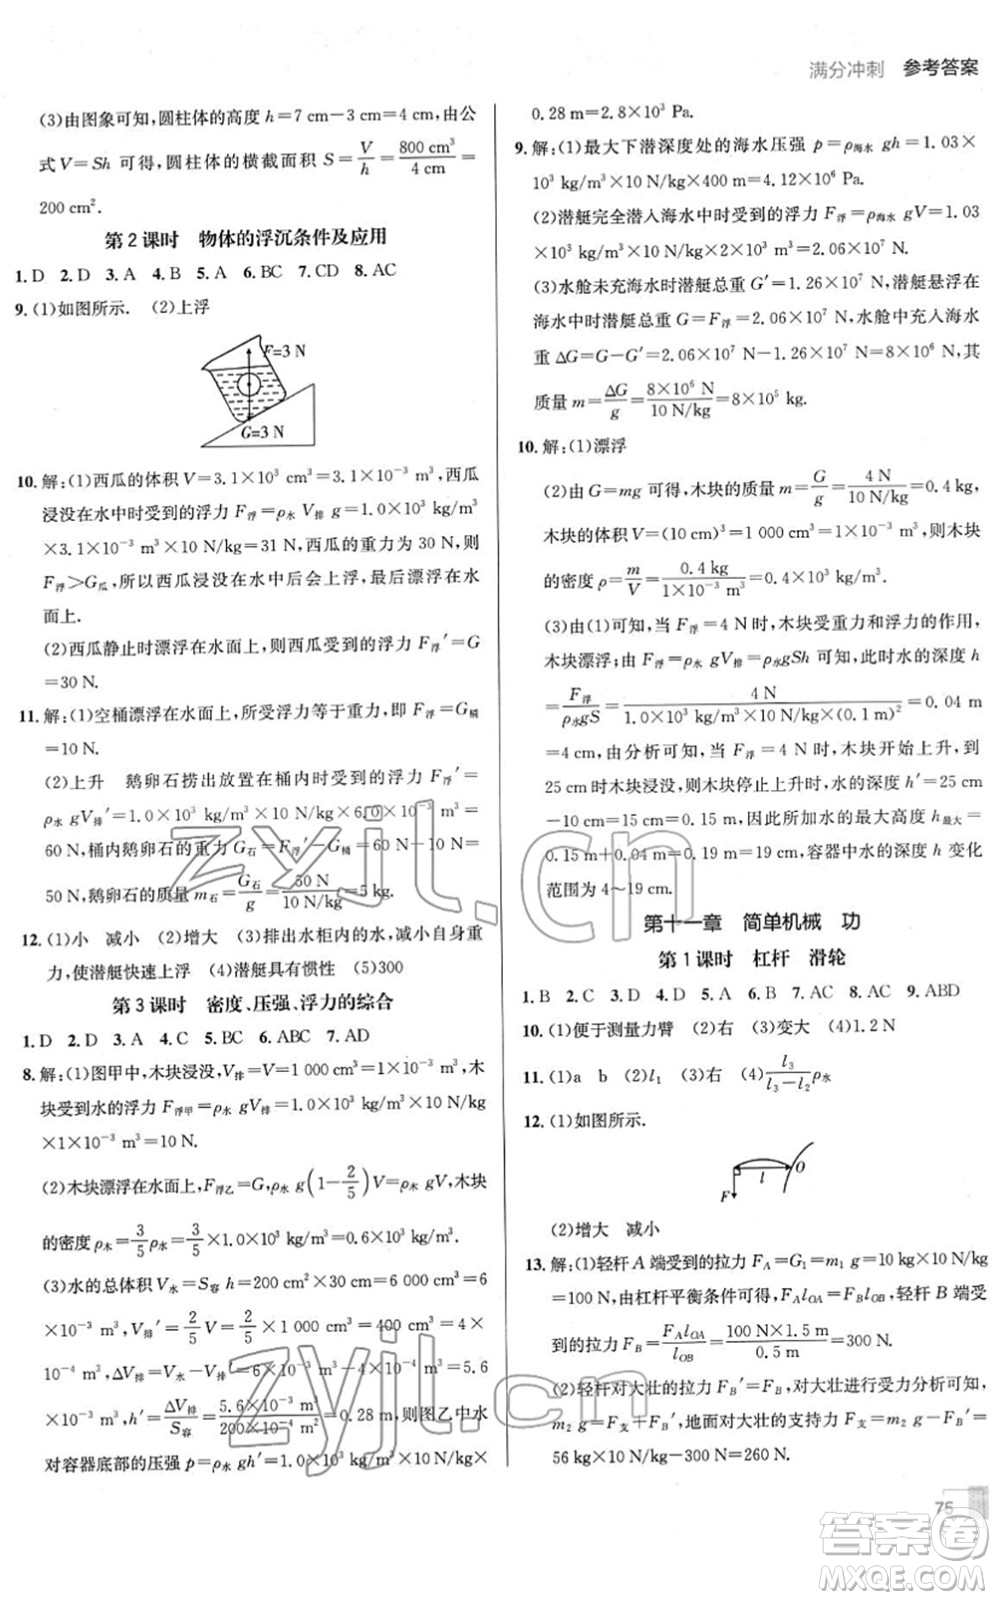 满分冲刺 参考答案
(3)由图象可知,圆柱体的高度 h=7 cm-3 cm=4 cm,由公
式 V=Sh 可得,圆柱体的横截面积 S=V/h=800 cm³/4 cm=
200 cm².
第2课时 物体的浮沉条件及应用
1.D 2.D 3.A 4.B 5.A 6.BC 7.CD 8.AC
9.(1)如图所示. (2)上浮
F=3 N
G=3 N
10.解:(1)西瓜的体积 V=3.1×10³ cm³=3.1×10⁻³ m³,西瓜
浸没在水中时受到的浮力 F浮=ρ水 V排 g=1.0×10³ kg/m³
×3.1×10⁻³ m³×10 N/kg=31 N,西瓜的重力为 30 N,则
F浮>G瓜,所以西瓜浸没在水中时会上浮,最后漂浮在水
面上.
(2)西瓜静止时漂浮在水面上,则西瓜受到的浮力 F浮′=G
=30 N.
11.解:(1)空桶漂浮在水面上,所受浮力等于重力,即 F浮=G桶
=10 N.
(2)上升 鹅卵石捞出放置在桶内时受到的浮力 F浮′=
ρ水 gV排′=1.0×10³ kg/m³×10 N/kg×6.0×10⁻³ m³=
60 N,桶内鹅卵石的重力 G石=F浮′-G桶=60 N-10 N=
50 N,鹅卵石的质量 m石=G石/g=50 N/10 N/kg=5 kg.
12.(1)小 减小 (2)增大 (3)排出水柜内的水,减小自身重
力,使潜艇快速上浮 (4)潜艇具有惯性 (5)300
第3课时 密度、压强、浮力的综合
1.D 2.D 3.A 4.C 5.BC 6.ABC 7.AD
8.解:(1)图甲中,木块浸没,V排=V=1 000 cm³=1×10⁻³ m³,木
块受到水的浮力 F浮甲=ρ水 gV排=1.0×10³ kg/m³×10 N/kg
×1×10⁻³ m³=10 N.
(2)木块漂浮在水面上,F浮乙=G,ρ水 g(1-2/5)V=ρ木 gV,木块
的密度 ρ木=3/5ρ水=3/5×1.0×10³ kg/m³=0.6×10³ kg/m³.
(3)水的总体积 V水=S容 h=200 cm²×30 cm=6 000 cm³=6
×10⁻³ m³,ΔV排′=2/5V=2/5×1 000 cm³=400 cm³=4×
10⁻⁴ m³,ΔV排=V水-V排′=6×10⁻³ m³-4×10⁻⁴ m³=5.6
×10⁻³ m³,h′=ΔV排/S容=5.6×10⁻³ m³/200×10⁻⁴ m²=0.28 m,则图乙中水
对容器底部的压强 p=ρ水 gh′=1.0×10³ kg/m³×10 N/kg×
0.28 m=2.8×10³ Pa.
9.解:(1)最大下潜深度处的海水压强 p=ρ海水 gh=1.03×
10³ kg/m³×10 N/kg×400 m=4.12×10⁶ Pa.
(2)潜艇完全潜入海水中时受到的浮力 F浮=ρ海水 gV=1.03
×10³ kg/m³×10 N/kg×2×10³ m³=2.06×10⁷ N.
(3)水舱未充海水时潜艇总重 G′=1.26×10⁷ N,潜艇悬浮在
海水中时潜艇总重 G=F浮=2.06×10⁷ N,水舱中充入海水
重 ΔG=G-G′=2.06×10⁷ N-1.26×10⁷ N=8×10⁶ N,其
质量 m=ΔG/g=8×10⁶ N/10 N/kg=8×10⁵ kg.
10.解:(1)漂浮
(2)由 G=mg 可得,木块的质量 m=G/g=4 N/10 N/kg=0.4 kg,
木块的体积 V=(10 cm)³=1 000 cm³=1×10⁻³ m³,则木块
的密度 ρ=m/V=0.4 kg/1×10⁻³ m³=0.4×10³ kg/m³.
(3)由(1)可知,当 F浮=4 N 时,木块受重力和浮力的作用,
木块漂浮;由 F浮=ρ水 gV排=ρ水gSh 可知,此时水的深度 h
=F浮/ρ水gS=4 N/1.0×10³ kg/m³×10 N/kg×(0.1 m)²=0.04 m
=4 cm,由分析可知,当 F浮=4 N 时,木块开始上升,到
25 cm时木块浸没,则木块停止上升时,水的深度 h′=25 cm
-10 cm=15 cm=0.15 m,因此所加水的最大高度 h最大=
0.15 m+0.04 m=0.19 m=19 cm,容器中水的深度 h 变化
范围为 4~19 cm.
第十一章 简单机械 功
第1课时 杠杆 滑轮
1.B 2.C 3.A 4.D 5.A 6.B 7.AC 8.AC 9.ABD
10.(1)便于测量力臂 (2)右 (3)变大 (4)1.2 N
11.(1)a b (2)l₁ (3)右 (4)l₃/l₃-l₂ρ水
12.(1)如图所示.
l O
F
(2)增大 减小
13.解:(1)轻杆 A 端受到的拉力 FA=G₁=m₁ g=10 kg×10 N/kg
=100 N,由杠杆平衡条件可得,FAlOA=FBlOB,轻杆 B 端受
到的拉力 FB=FAlOA/lOB=100 N×1.5 m/0.5 m=300 N.
(2)轻杆对大壮的拉力 FB′=FB,对大壮进行受力分析可知,
m₂ g=F支+FB′,地面对大壮的支持力 F支=m₂ g-FB′=
56 kg×10 N/kg-300 N=260 N.
75
zyjl.cn
zyjl.cn
答案圈